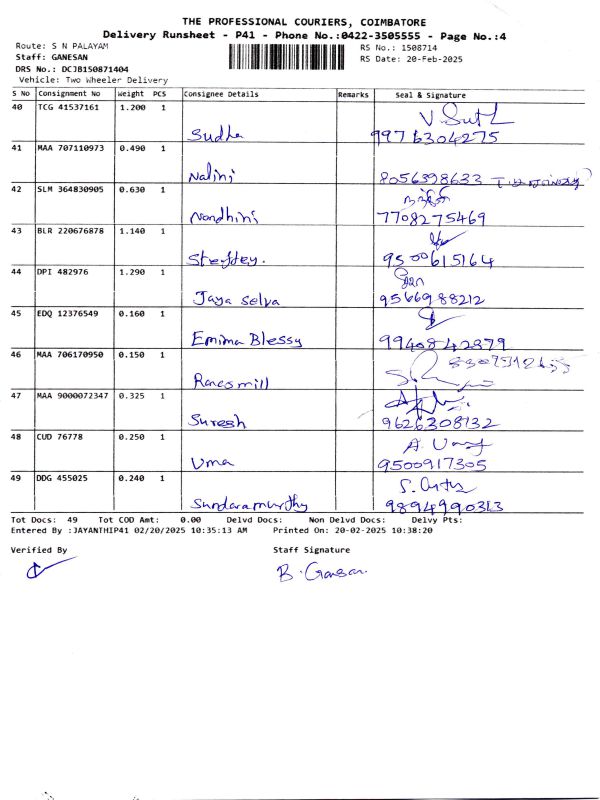 THE PROFESSIONAL COURIERS, COIMBATORE
Delivery Runsheet - P41 - Phone No.:0422-3505555 - Page No.:4
Route: S N PALAYAM
RS No.: 1508714
Staff: GANESAN
RS Date: 20-Feb-2025
DRS No.: DCJB150871404
Vehicle: Two Wheeler Delivery
S No Consignment No Weight PCS Consignee Details Remarks Seal & Signature
40 TCG 41537161 1.200 1
Sudha 9976304275
41 MAA 707110973 0.490 1
Nalini 8056398633
42 SLM 364830905 0.630 1 நந்தினி
Nandhini 7708275469
43 BLR 220676878 1.140 1
Steffey. 9500615164
44 DPI 482976 1.290 1
Jaya selva 9566988212
45 EDQ 12376549 0.160 1
Emima Blessy 9940842379
46 MAA 706170950 0.150 1
47 MAA 9000072347 0.325 1
Suresh 9626308132
48 CUD 76778 0.250 1
Uma 9500917305
49 DDG 455025 0.240 1
Sundaramurthy 9894990313
Tot Docs: 49 Tot COD Amt: 0.00 Delvd Docs: Non Delvd Docs: Delvy Pts:
Entered By :JAYANTHIP41 02/20/2025 10:35:13 AM Printed On: 20-02-2025 10:38:20
Verified By Staff Signature
B. Ganesan.